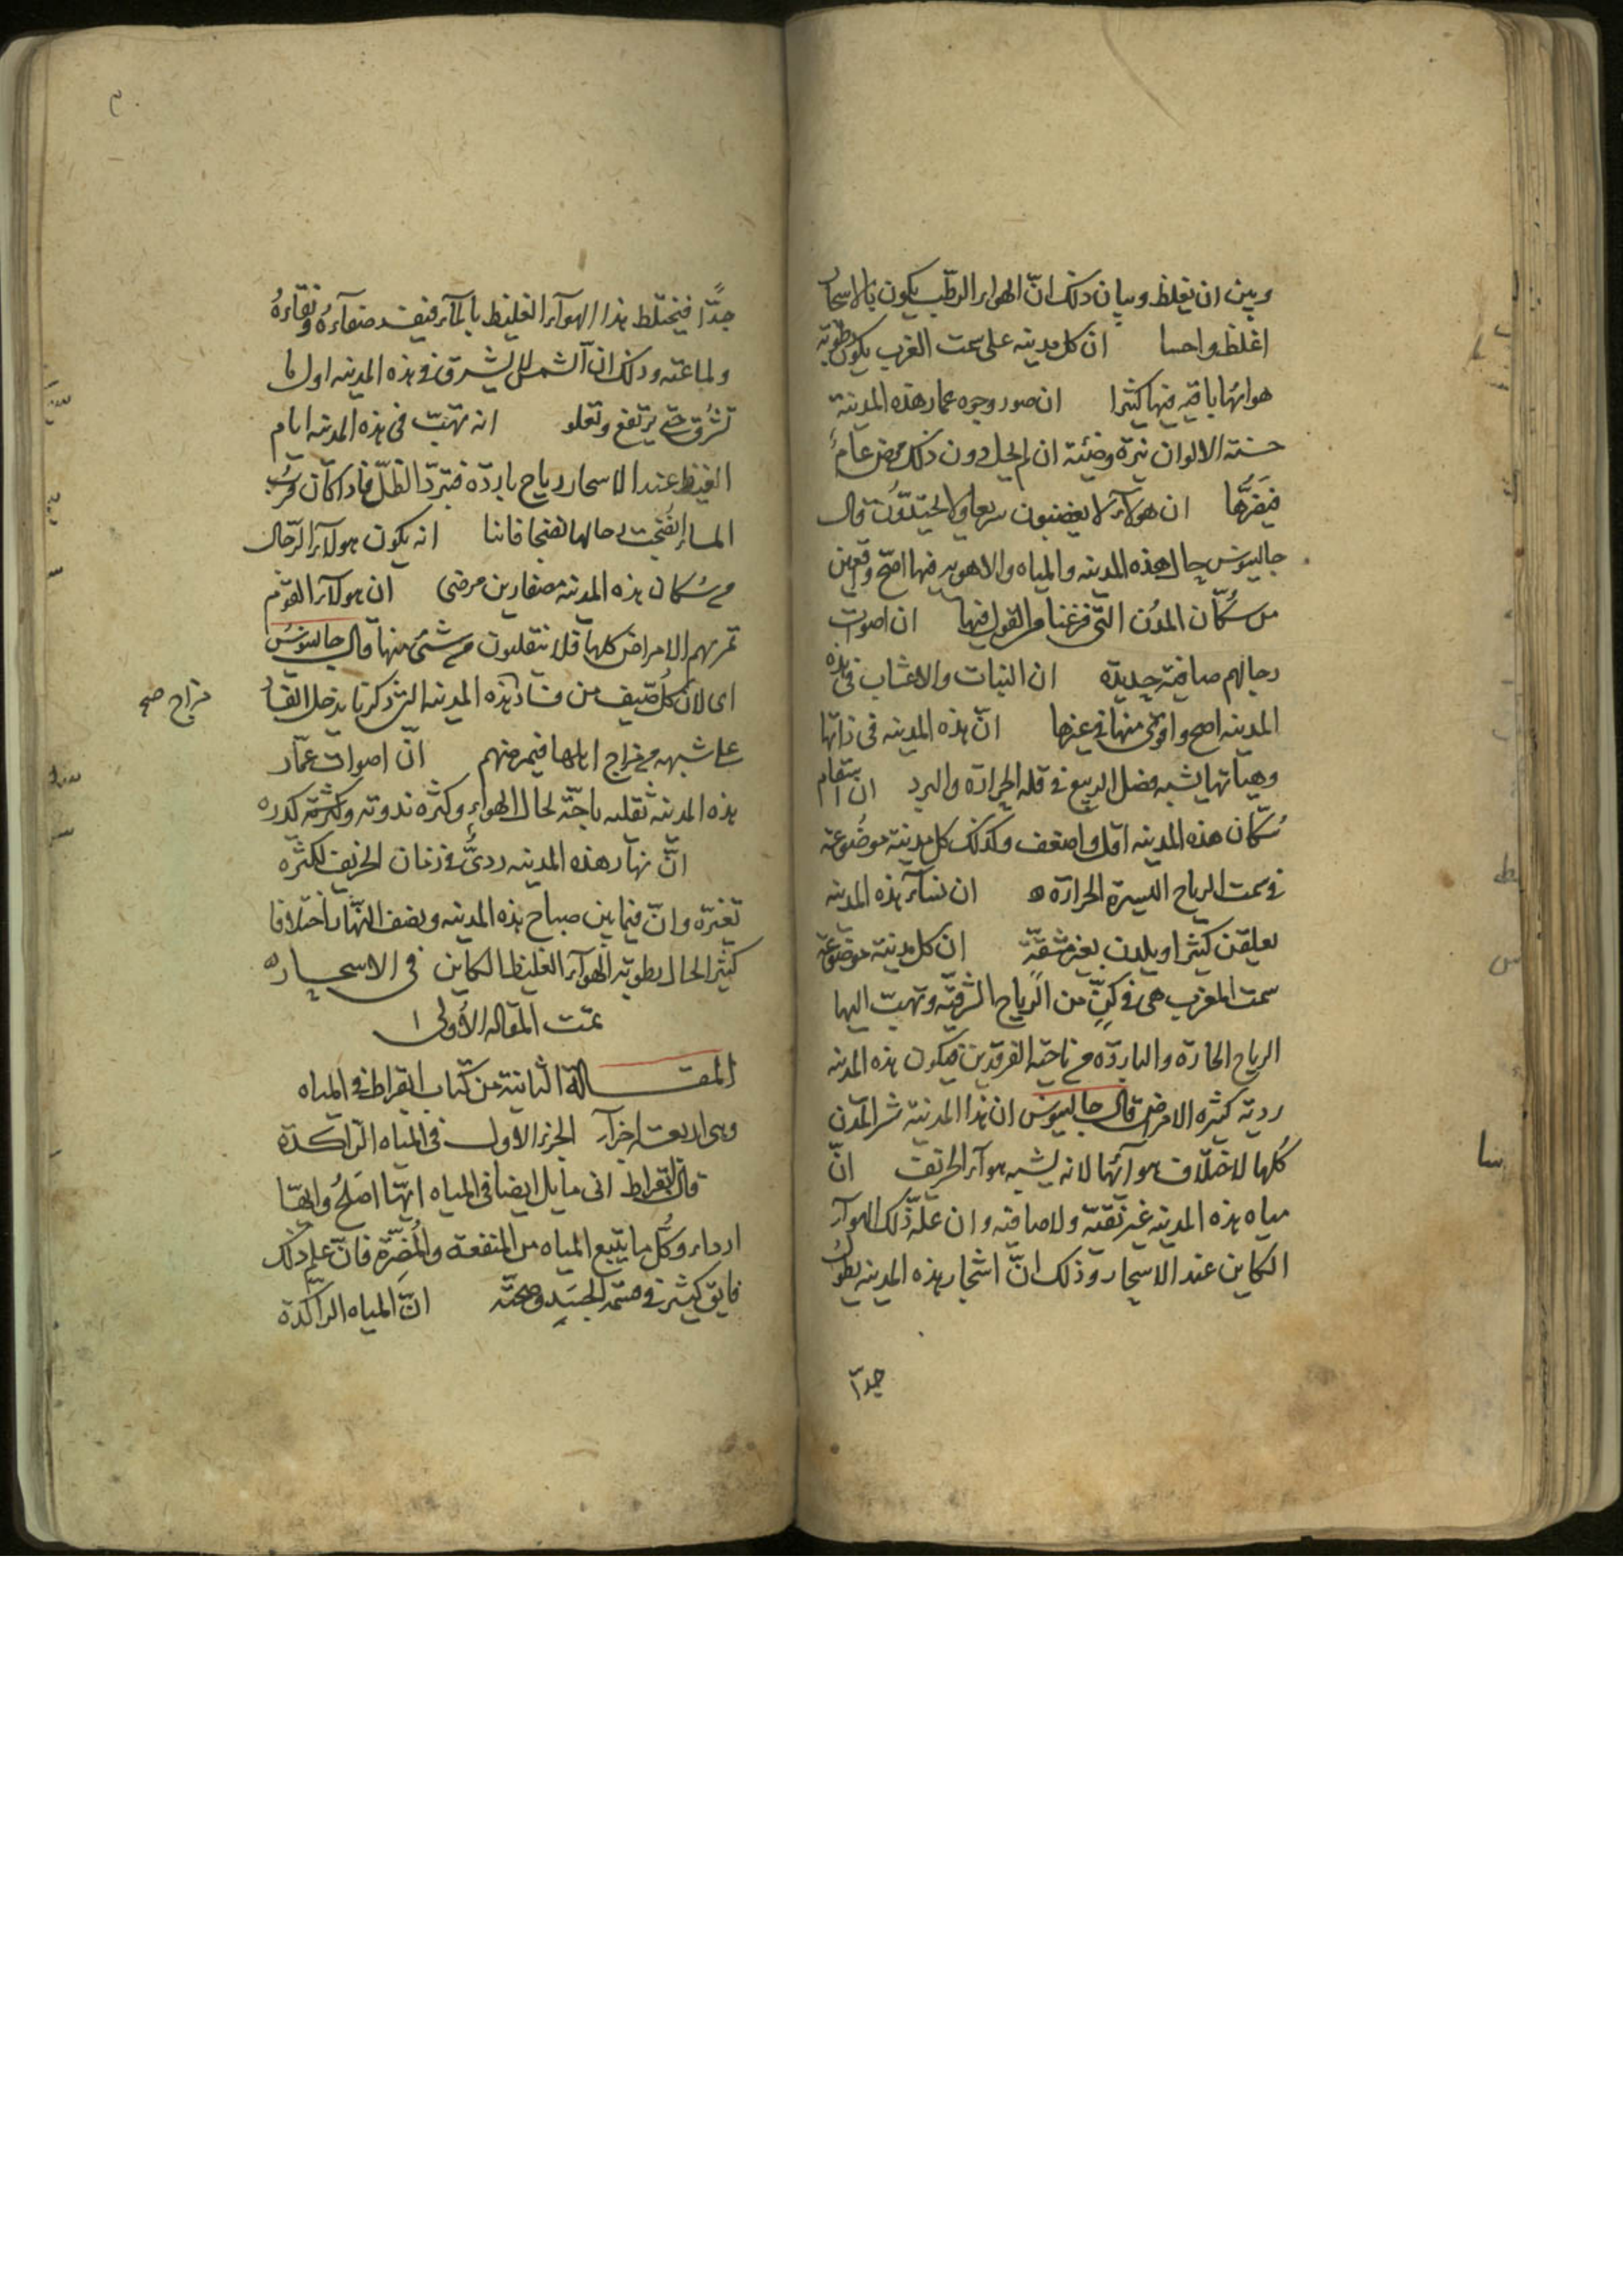 وبين ان يغلظ وبيان ذلك انّ الهواء الرطب يكون بالاسحار
اغلظ واحسا ان كل مدينه على سمت الغرب يكون رطوبة
هوائها باقيه فيها كثيرا ان صور وجوه عمار هذه المدينة
حسنة الالوان نيرة وضئية ان لم يحل دون ذلك مرض عام
فيغيرها ان هولآء لا يغضبون سريعا ولا يحتدون قال
جالينوس حال هذه المدينه والمياه والاهويه فيها اصح
من سكّان المدُن التى فرغنا من القول فيها ان اصوات
رجالهم صافية حديدة ان النبات والاعشاب فى هذه
المدينه اصح واقوى منها فى غيرها انّ هذه المدينه فى ذاتها
وهيأتها يشبه فصل الربيع فى قله الحرارة والبرد ان اسقام
سُكّان هذه المدينه اقل واضعف وكذلك كل مدينة موضُوعة
فى سمت الرياح اليسيرة الحرارة ان نسآء هذه المدينه
يعلقن كثيرا ويلدن بغير مشقّة ان كل مدينة موضوعة
سمت المغرب هى فى كنٍّ من الرياح الشرقيّه وتهبّ اليها
الرياح الحارة والباردة من ناحية الفرقدين فيكون هذه المدينه
رديه كثيره الامراض قال جالينوس ان هذا المدينة شر المدن
كُلها لاختلاف هوآئها لانه يشبه هوآء الخريف انّ
مياه هذه المدينه غير نقيّة ولا صافيه وان علّة ذلك الهوآء
الكاين عند الاسحار وذلك انّ اشجار هذه المدينه يطول
جدّاً
جدّاً فيختلط هذا الهوآء الغليظ بالمآء فيفسد صفآءهُ ونقاءهُ
ولماعته وذلك ان الشمس لا يشرق فى هذه المدينه اول ما
تشرُق حتى يرتفع وتعلو انه تهبّ فى هذه المدينه ايام
القيظ عند الاسحار رياح باردة
انه يكون هولآء الرّجال
من سُكان هذه المدينة مصفارين مرضى ان هولآء القوم
تمر بهم الامراض كلها فلا ينقلبون من شئ منها قال جالينوسُ
اى لان كُل صنف من فساد هذه المدينه التى ذكرنا يدخل الفساد
مزاج صح
على شبهه من مزاج اهلها فيمرضهم انّ اصوات عمّار
هذه المدينه ثقليه باحّة لحال الهواء وكثره ندوته وكثرته كدره
انّ نهار هذه المدينه ردىُّ فى زمان الخريف لكثره
تغيّره وانّ فيما بين صباح هذه المدينه ونصف النّهار اختلافا
كثيرا لحال رطوبة الهوآء الغليظ الكاين فى الاسحاره
تمّت المقاله الأولى
المقـــالة الثانية من كتاب ابقراط فى المياه
وهى اربعة اجزآء الجزء الاول فى المياه الراكدة
قال ابقراط انى مايل ايضا فى المياه ايّها اصَلحُ وايهّا
ارداء وكُل ما يتبع المياه من المنفعة والمُضِرّة فانّ علم ذلك
فايق كثير فى الجسَدِ وصحّته انّ المياه الراكدة